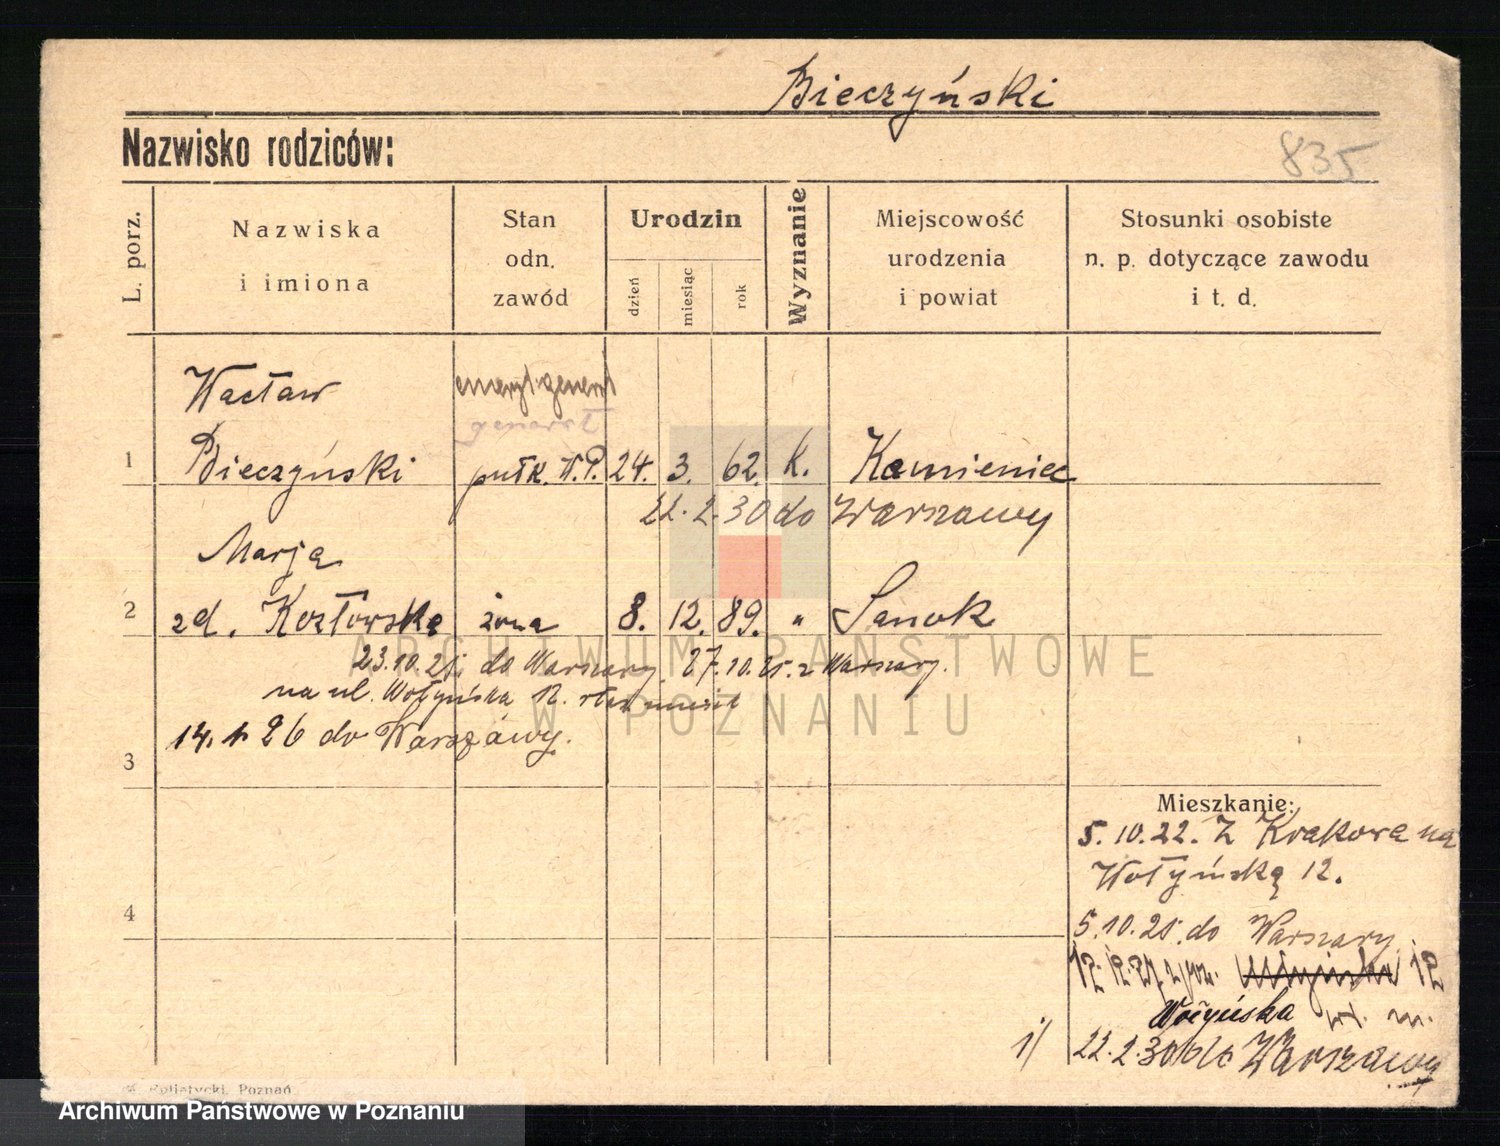 Bieczyński
Nazwisko rodziców:
835
L. porz.
Nazwiska
i imiona
Stan
odn.
zawód
Urodzin
dzień
miesiąc
rok
Wyznanie
Miejscowość
urodzenia
i powiat
Stosunki osobiste
n. p. dotyczące zawodu
i t. d.
Wacław
emeryt. generał
generał
1 Bieczyński pułk. W.P. 24. 3. 62. K. Kamieniec
22. 2. 30 do Warszawy
Marja
2 zd. Kozłowska żona 8. 12. 89. " Sanok
23.10.25. do Warszawy 27.10.25. z Warszawy.
na ul. Wołyńska 12.
14. 1. 26 do Warszawy.
3
Mieszkanie:
5.10.22. Z Krakowa na
Wołyńską 12.
4
5.10.25. do Warszawy
12
Wołyńska
22. 2. 30 do Warszawy
ARCHIWUM PAŃSTWOWE
W POZNANIU
Poznań
Archiwum Państwowe w Poznaniu